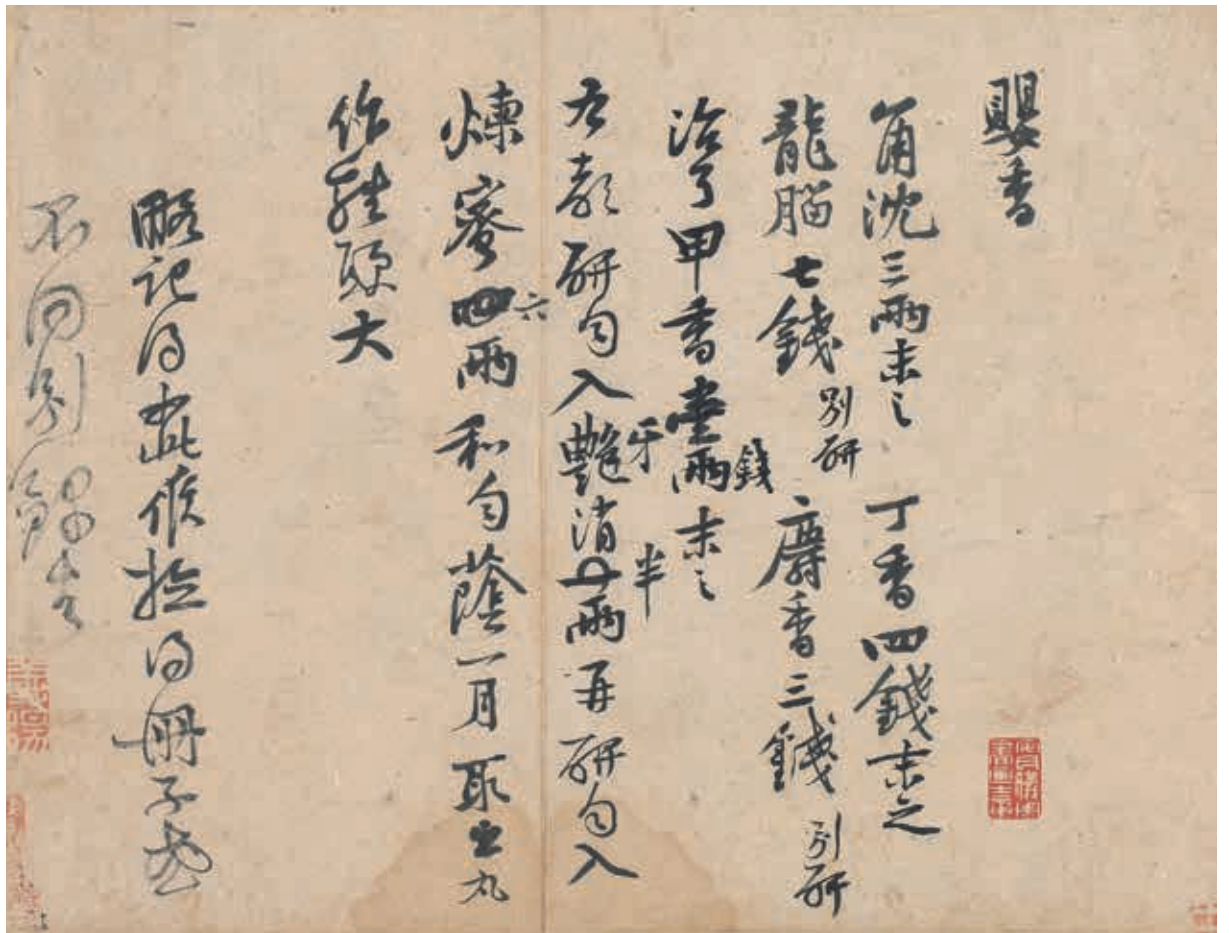 嬰香
角沈三兩末之 丁香四錢末之
龍腦七錢別研 麝香三錢別研
治了甲香壹兩錢末之
右都研勻入艷牙消半兩再研勻入
煉蜜四六兩和勻蔭一月取出丸
作雞頭大
略記得此候檢得冊子或
不同別